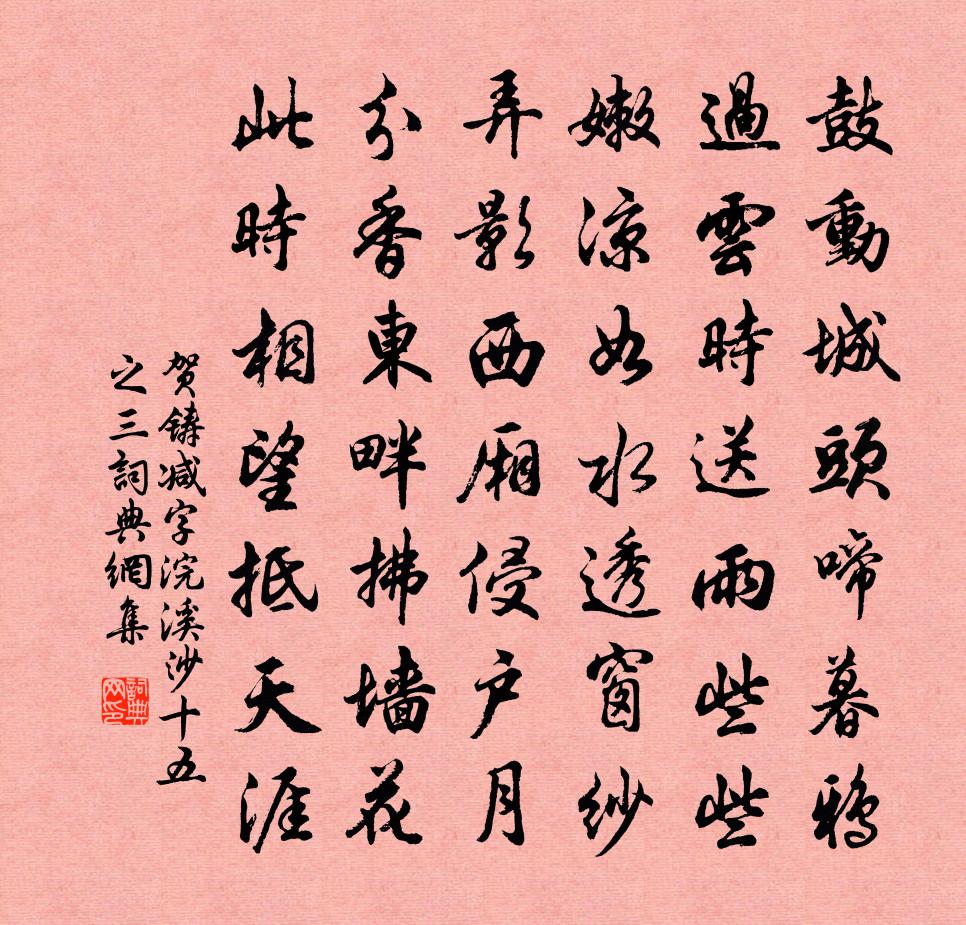 鼓動城頭啼暮鴉
過雲時送雨些些
嫩涼如水透窗紗
弄影西厢侵户月
分香東畔拂墙花
此時相望抵天涯
贺鋳减字浣溪沙十五
之三詞典網集
詞典网印